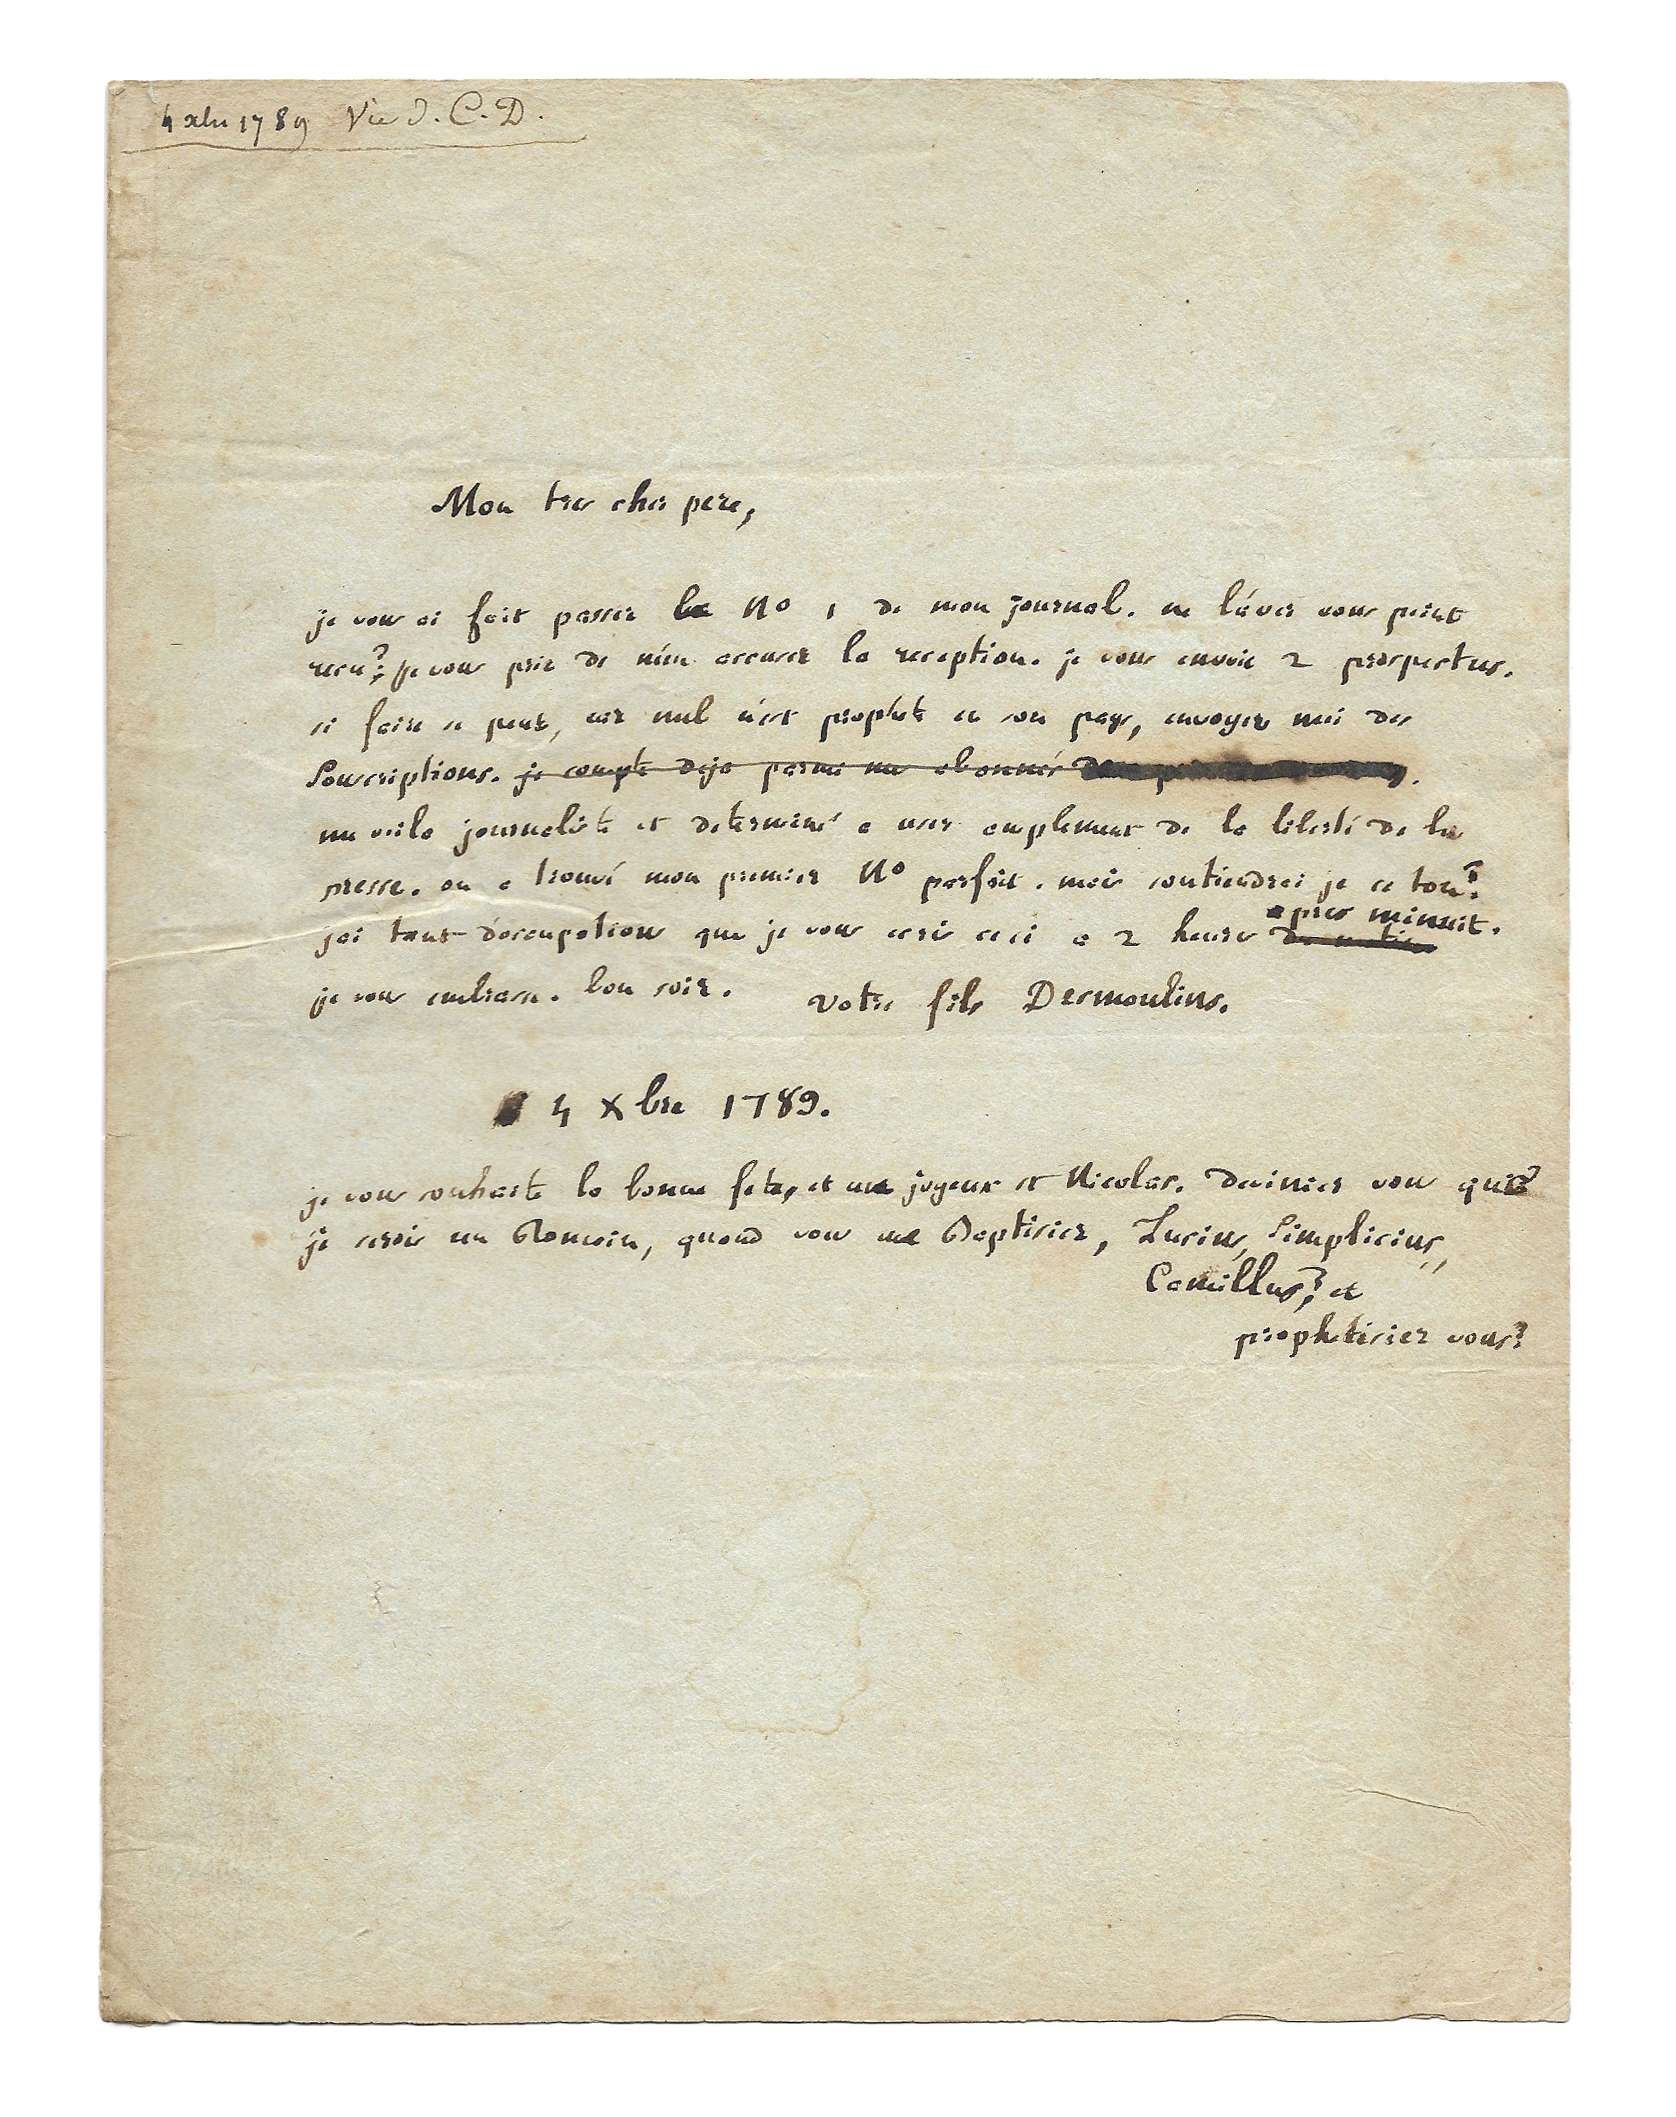 4 xbre 1789 Vie d. C. D.
Mon tres cher pere,
je vous ai fait passer le No 1 de mon journal. ne l'avez vous point
recu? je vous prie de m'en accuser la reception. je vous envoie 2 prospectus.
si faire se peut, car nul n'est prophete en son pays, envoyez moi des
souscriptions. je compte deja parmi mes abonnés
me voila journaliste et determiné a user amplement de la liberté de la
presse. on a trouvé mon premier No parfait. mais soutiendrai je ce ton?
j'ai tant d'occupations que je vous ecris ceci a 2 heures du matin apres minuit.
je vous embrasse. bon soir. votre fils Desmoulins.
4 Xbre 1789.
je vous souhaite la bonne fete, et un joyeux st Nicolas. deviniez vous que
je serois un Romain, quand vous me baptisiez, Lucius, Simplicius,
Camillus? et
prophetisiez vous?